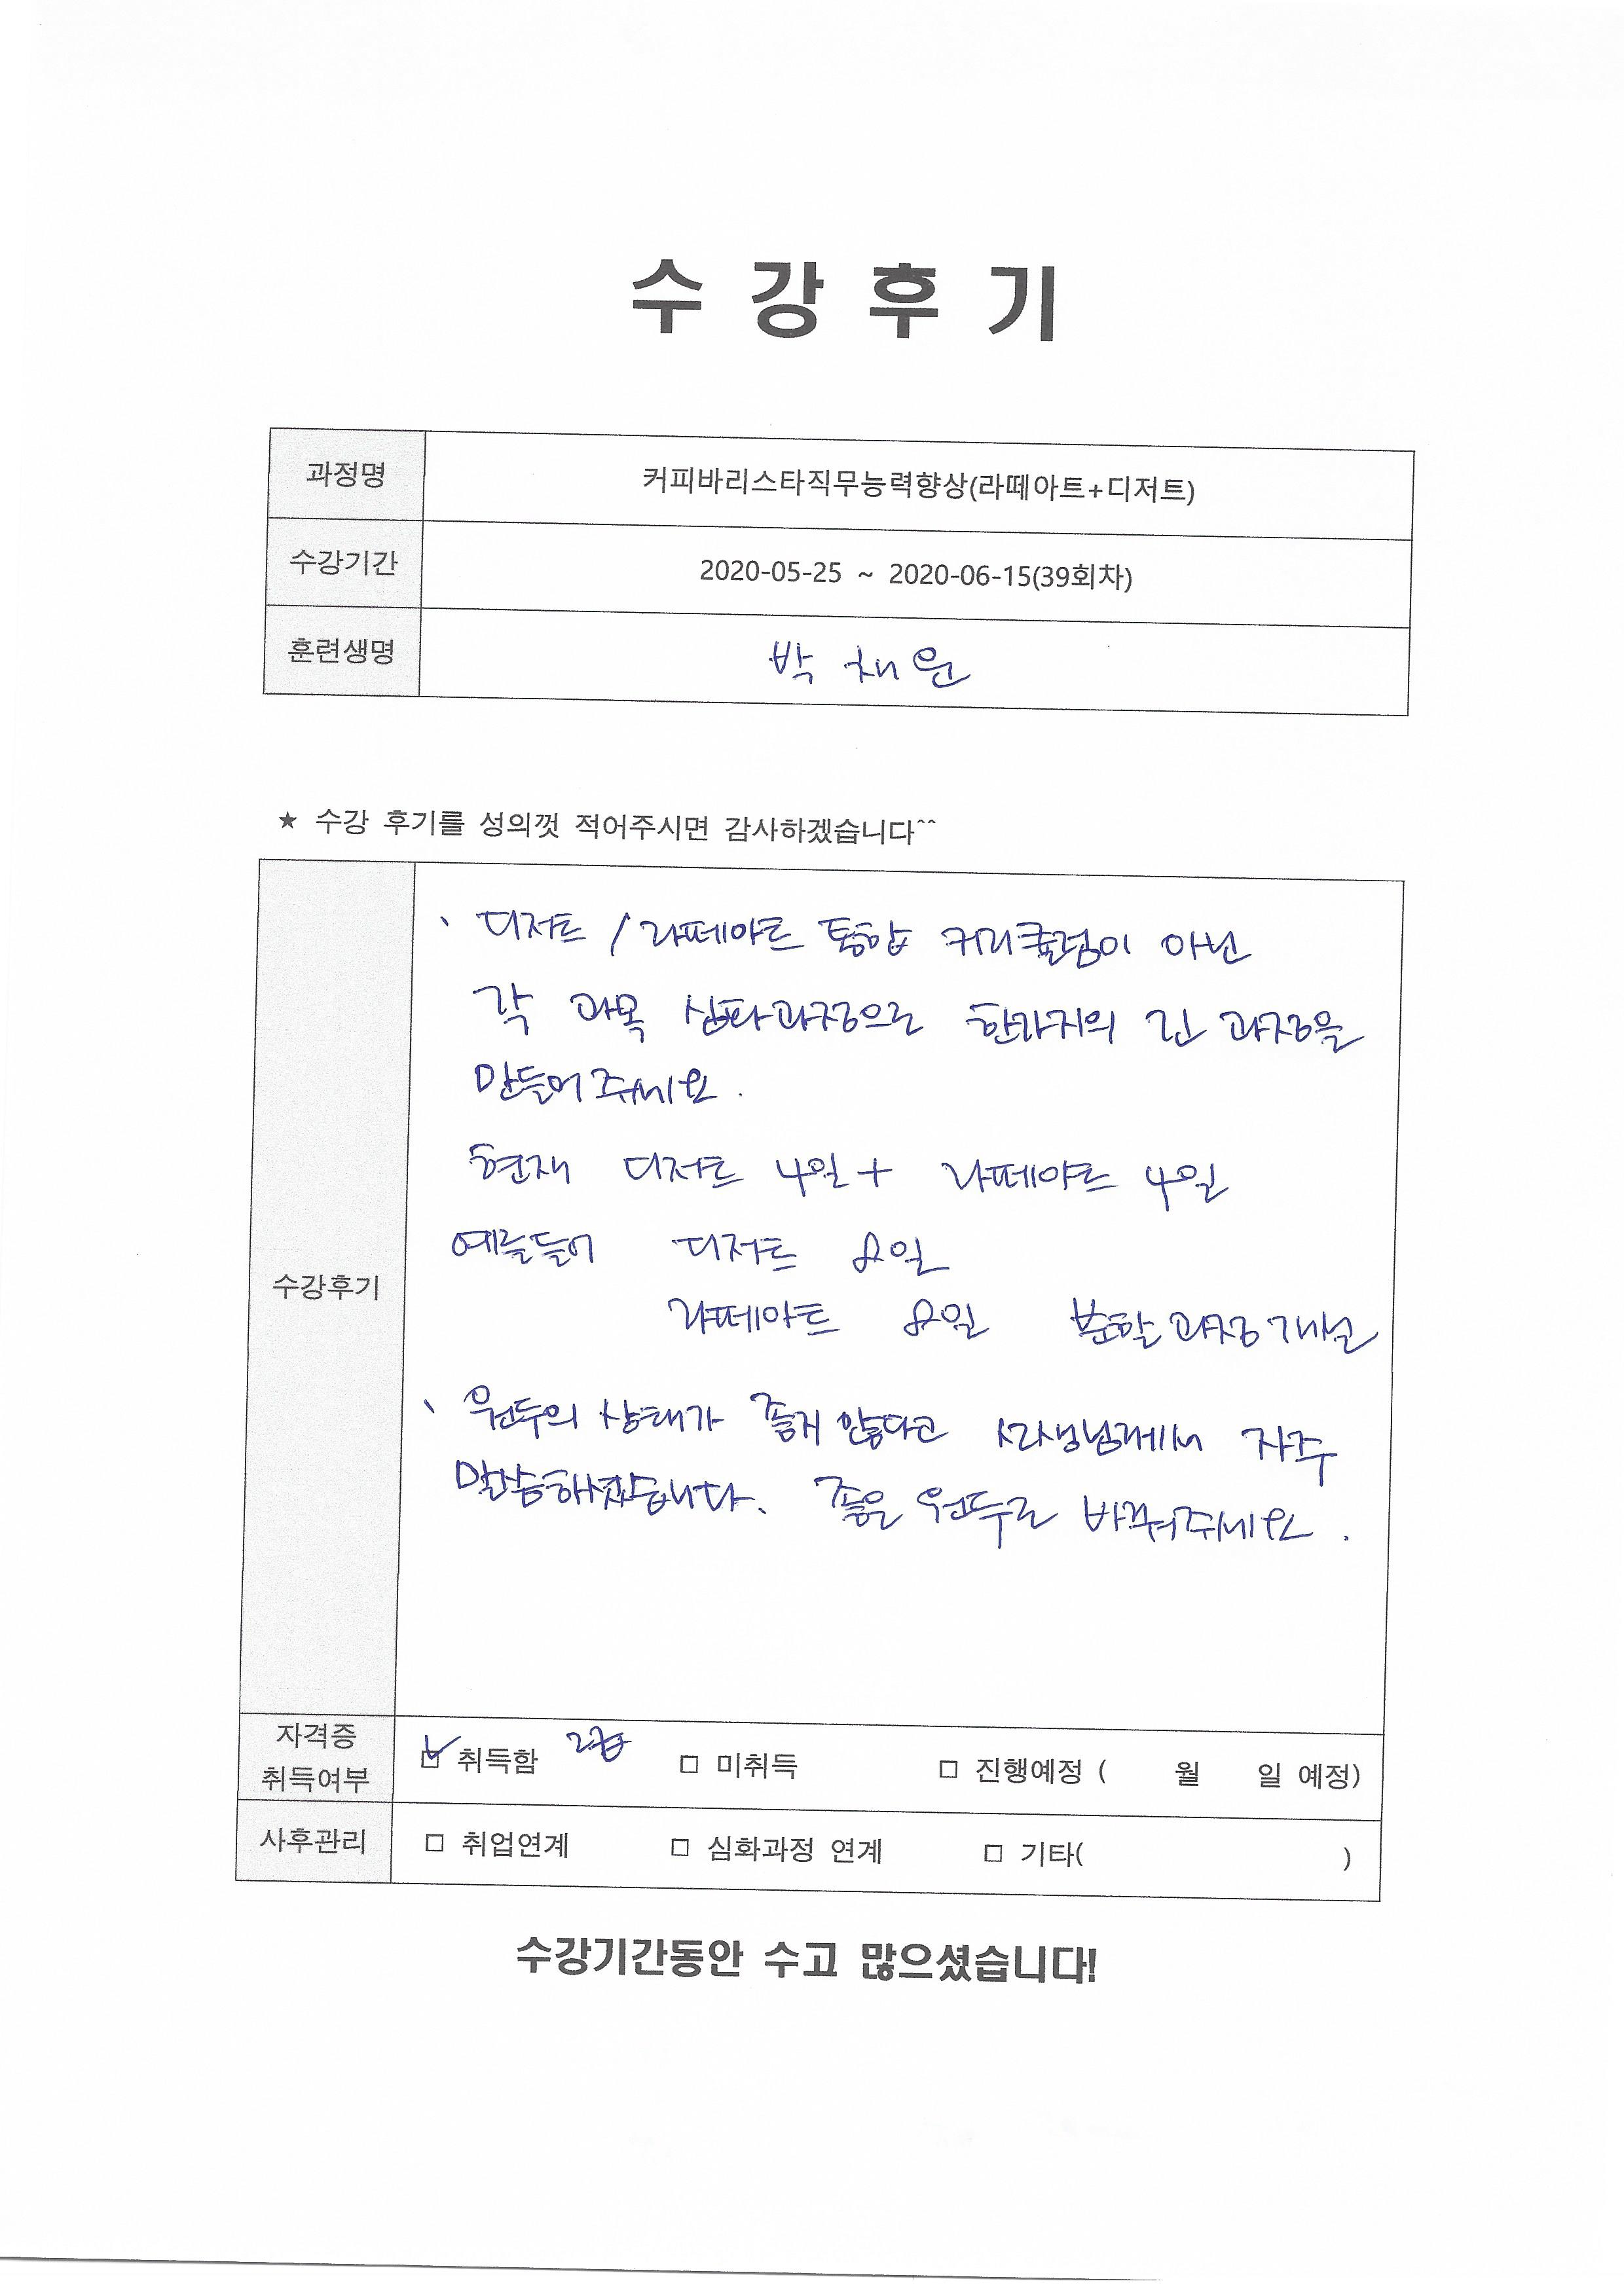 수 강 후 기
과정명 커피바리스타직무능력향상(라떼아트+디저트)
수강기간 2020-05-25 ~ 2020-06-15(39회차)
훈련생명 박 채 원
★ 수강 후기를 성의껏 적어주시면 감사하겠습니다^^
수강후기
、 디저트 / 라떼아트 통합 커리큘럼이 아닌
각 과목 심화과정으로 한가지의 긴 과정을
만들어주세요.
현재 디저트 4일 + 라떼아트 4일
예를들어 디저트 8일
라떼아트 8일 분할과정개설
、 원두의 상태가 좋지 않다고 선생님께서 자주
말씀하셨습니다. 좋은 원두로 바꿔주세요.
자격증
취득여부
☑ 취득함 2급 □ 미취득 □ 진행예정 ( 월 일 예정)
사후관리 □ 취업연계 □ 심화과정 연계 □ 기타( )
수강기간동안 수고 많으셨습니다!